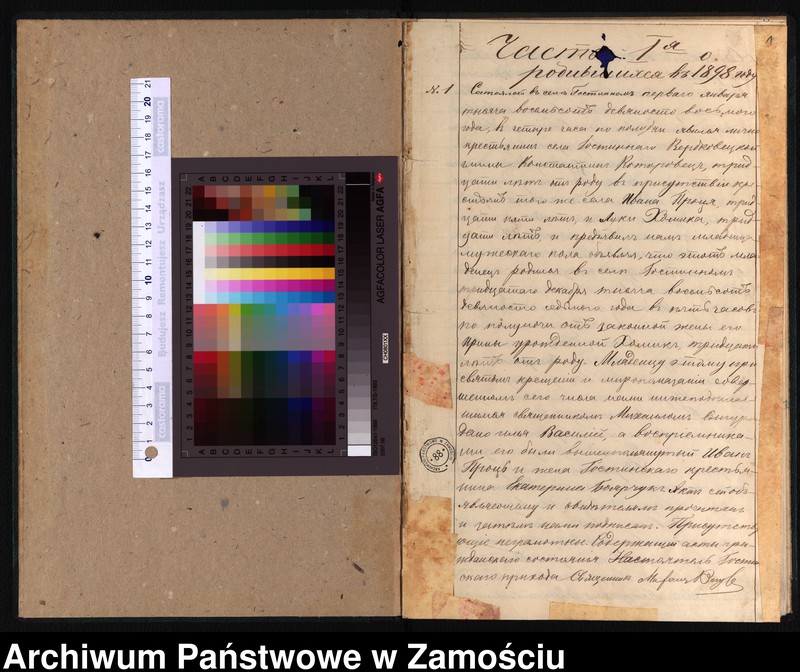 Часть Iя о
родившихся въ 1898 году
N. 1 Состоялось въ селѣ Гостинномъ перваго января
тысяча восемьсотъ девяносто восьмого
года, въ четыре часа по полудни явился лично
крестьянинъ села Гостиннаго Вербковецкой
гмины Константинъ Которовецъ, трид-
цати лѣтъ отъ роду въ присутствіи кре
стьянъ того же села Ивана Проця, трид
цати пяти лѣтъ, и Луки Хомика, трид-
цати лѣтъ, и предъявилъ намъ младенца
мужескаго пола объявляя, что этотъ мла
денецъ родился въ селѣ Гостинномъ
тридцатаго декабря тысяча восемьсотъ
девяносто седьмого года въ пять часовъ
по полуночи отъ законной жены его
урожденной Хомикъ, тридцати
лѣтъ отъ роду. Младенцу этому при
святомъ крещеніи и миропомазаніи совер-
шенномъ сего числа нами нижеподписав-
шимся священникомъ Михаиломъ
дано имя Василій, а воспріемника-
ми его были вышепомянутый Иванъ
Проць и жена Гостиннаго крестья-
нина Екатерина Бондрчукъ Актъ сей объ-
являющему и свидѣтелямъ прочитанъ
и затѣмъ нами подписанъ. Присутству
ющіе неграмотны. Содержащій акты граж-
данскаго состоянія Настоятель Гостин
скаго прихода Священникъ
castorama
Budujesz Remontujesz Urządzasz
castorama
AGFACOLOR LASER AGFA
A B C D E F G H I J K L
88
Archiwum Państwowe w Zamościu